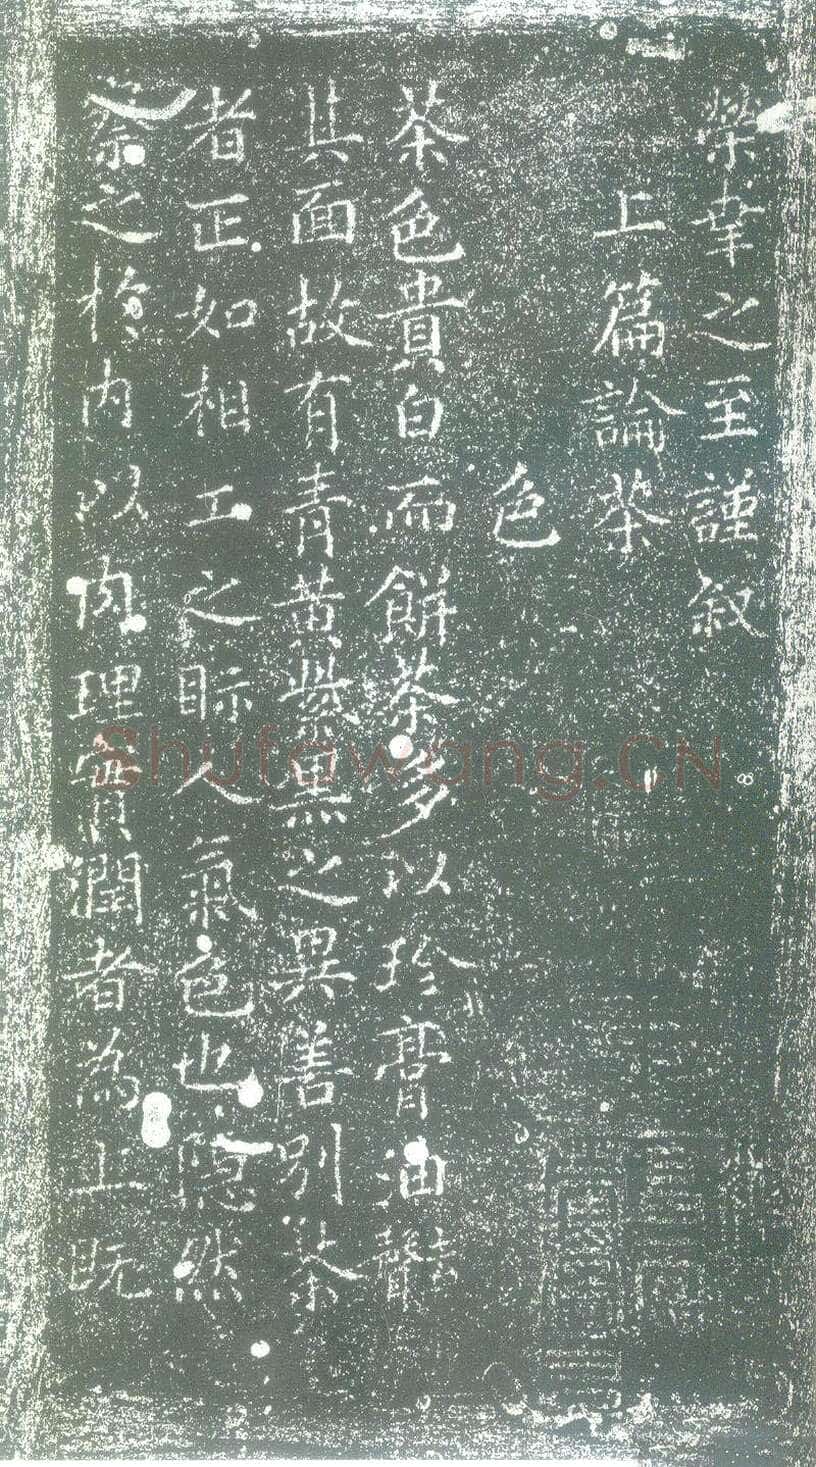 榮幸之至謹叙
上篇論茶
色
茶色貴白而餅茶多以珍膏油去聲
其面故有青黃紫黑之異善別茶
者正如相工之眎人氣色也隱然
察之於內以肉理實潤者為上既
Shufawang.CN